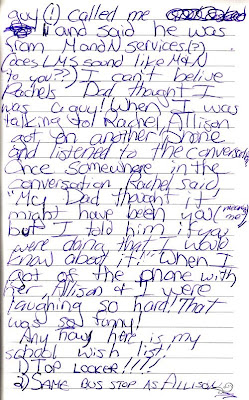 guy (!) called me
and said he was
from M and N services(?)
(does LMS sound like M&N
to you??) I can't belive
Rachels Dad thought I
was a guy! When I was
talking to Rachel, Allison
got on another phone
and listened to the conversation
Once somewhere in the
conversation Rachel said,
"My Dad thought it
might have been you (meaning me)
but I told him if you
were doing that I would
know about it!" When I
got of the phone with
her, Allison & I were
laughing so hard! That
was so funny!
Any how here is my
school wish list!
1) TOP LOCKER!!!!
2) SAME BUS STOP AS ALLISON